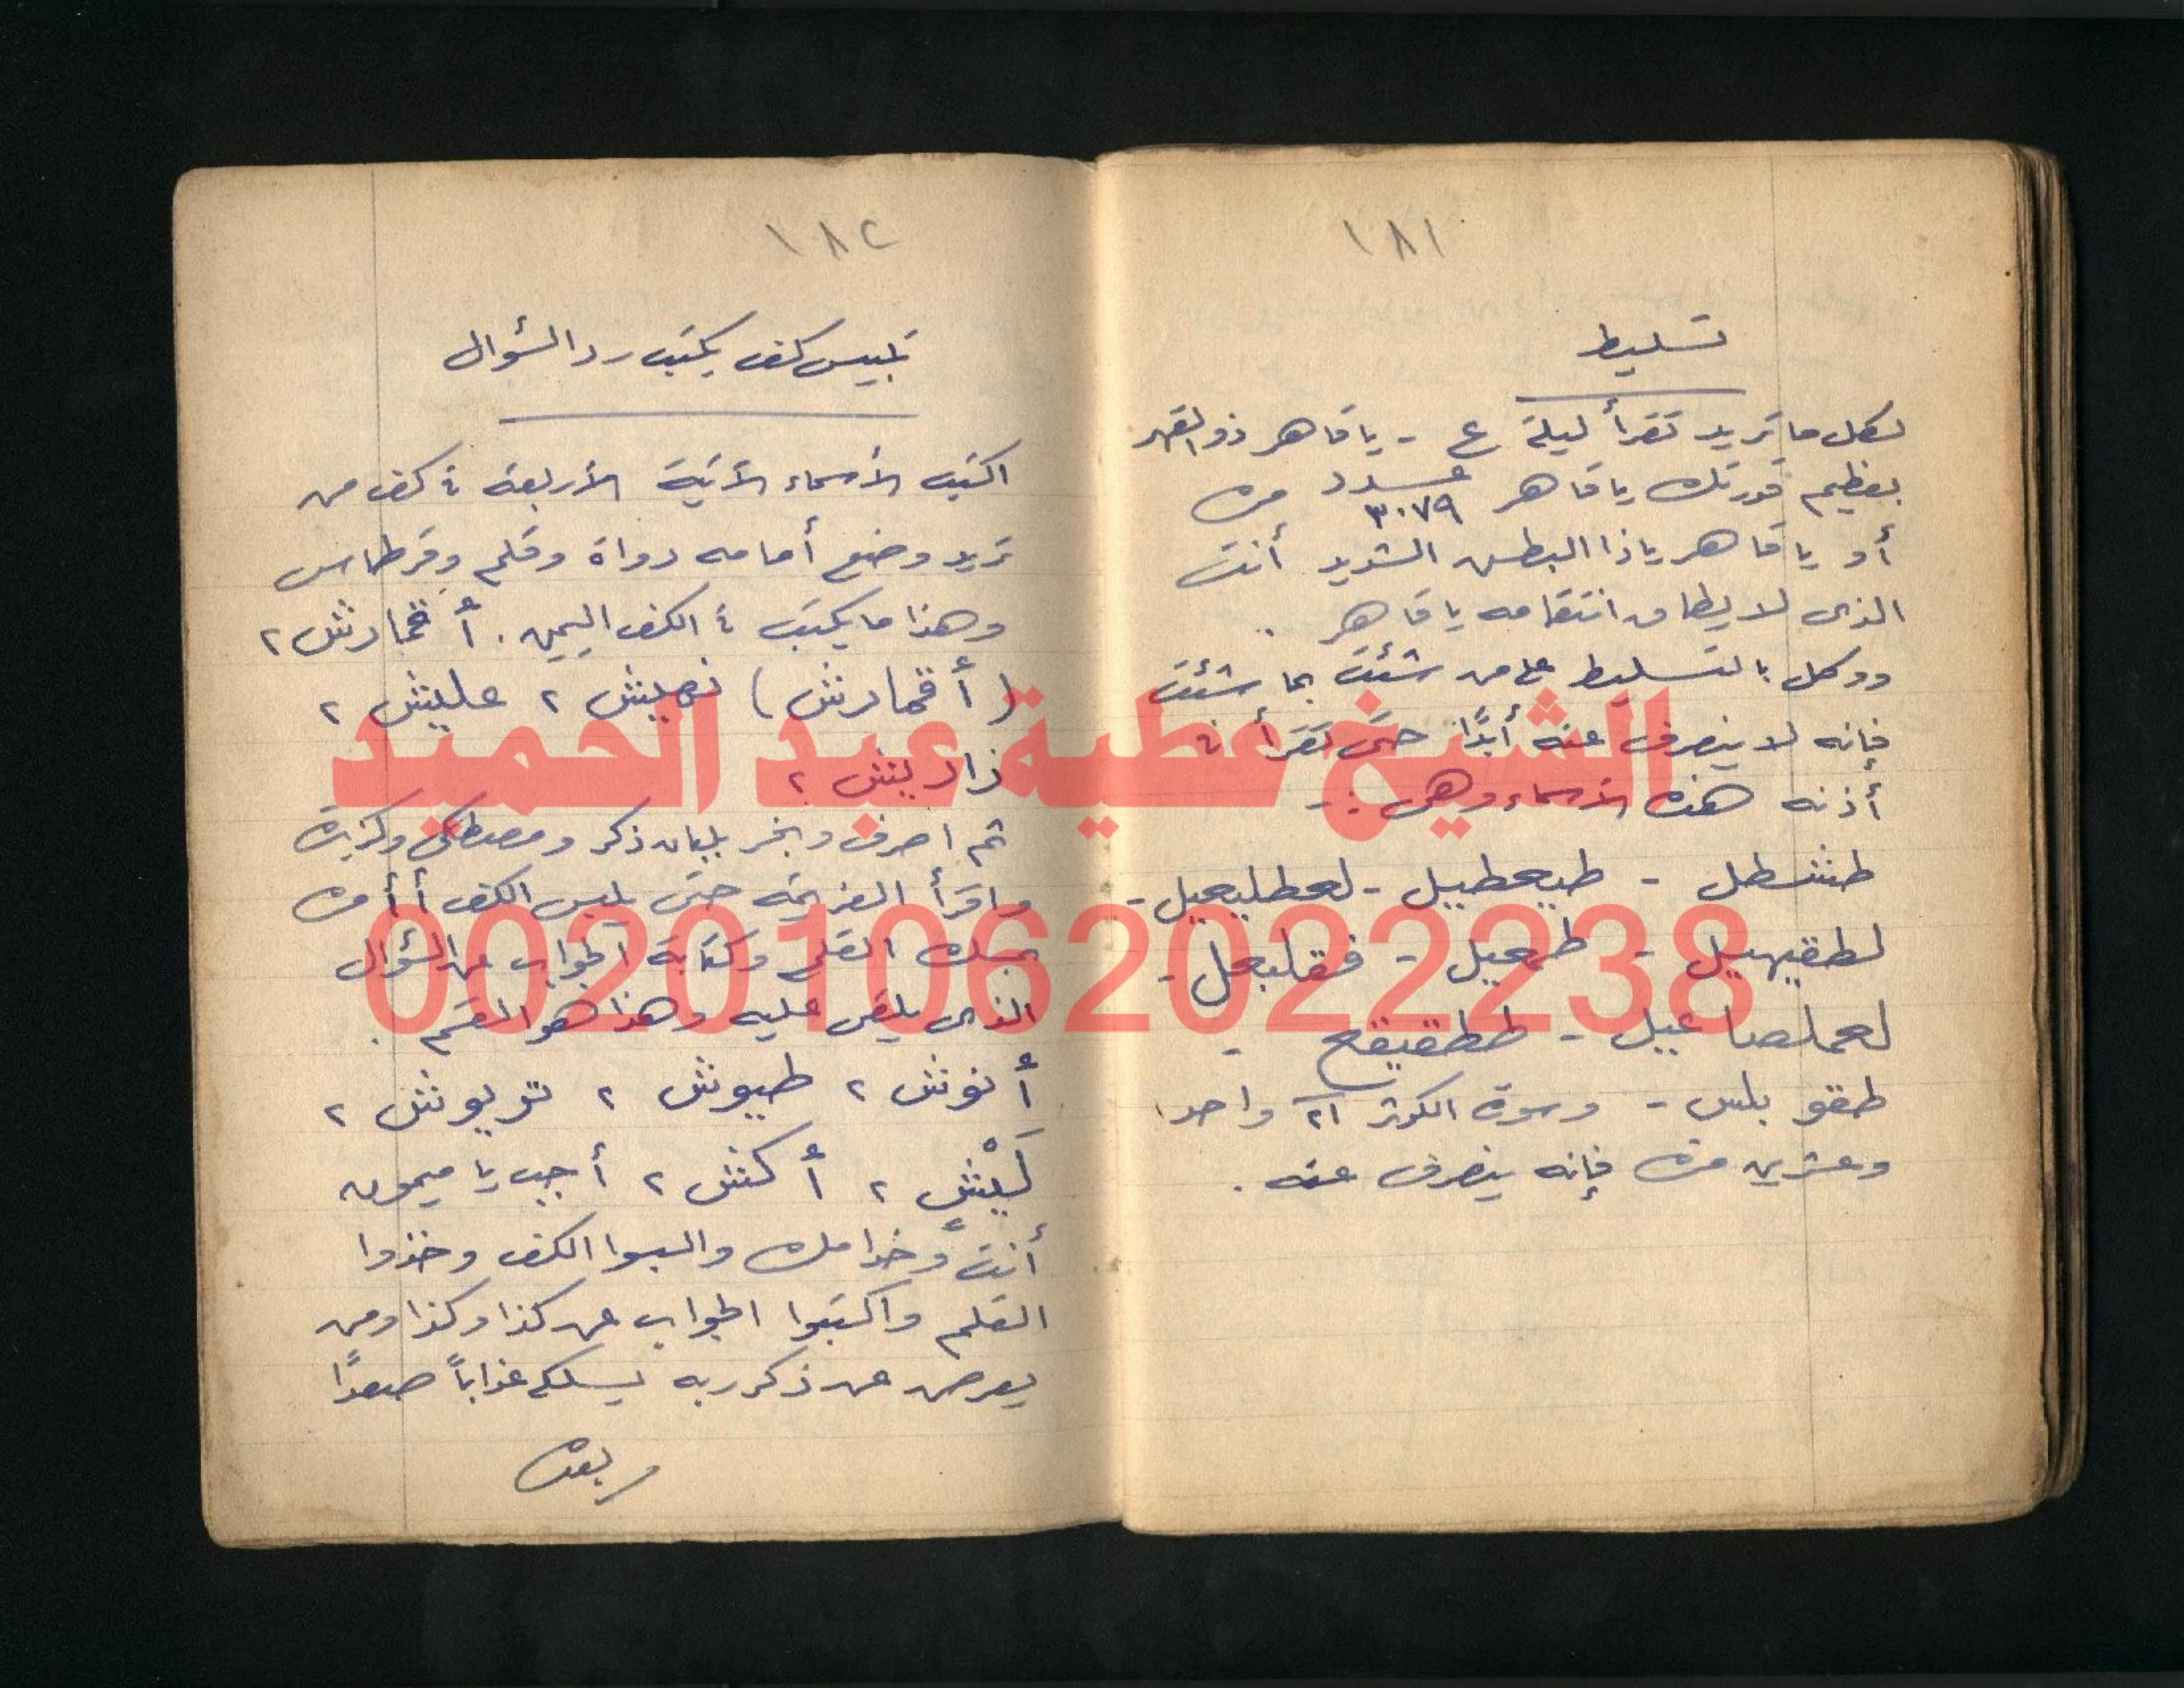 ١٨١
تسليط
لكل ما تريد تقرأ ليلة ع - يا قاهر ذو القهر
بعظيم قدرتك يا قاهر عدد ٣٠٧٩ مرة
أو يا قاهر يا ذا البطش الشديد أنت
الذى لا يطاق انتقامه يا قاهر ..
ووكل بالتسليط على من شئت بما شئت
فإنه لا ينصرف عنه أبدًا حتى تقرأ فى
أذنه هذه الأسماء وهى :-
طشطل - طيعطيل - لعطليعيل -
لطقيهيل - طمعيل - فقلبجل -
لعملصاعيل - ططقيقع -
طقو بلس - وسورة الكوثر ٢١ واحد
وعشرين مرة فإنه ينصرف عنه .
١٨٢
تلبيس كف يكتب رد السؤال
اكتب الأسماء الأتية الأربعة فى كف من
تريد وضع أمامه دواة وقلم وقرطاس
وهذا ما يكتب فى الكف اليمين . أقمارش ٢
(أقمارش) نهيش ٢ عليش ٢
زاربيش ٢
ثم اصرف وبخر بلبان ذكر ومصطكى وكزبرة
واقرأ العزيمة حتى يلبس الكف أأمره
بمسك القلم وكتابة الجواب عن السؤال
الذى يلقى عليه وهذا هو القسم .
أنوش ٢ طيوش ٢ تريوش ٢
كيش ٢ أكش ٢ أجب يا ميمون
أنت وخدامك والبسوا الكف وخذوا
القلم واكتبوا الجواب عن كذا وكذا ومن
يعرض عن ذكر ربه يسلكه عذاباً صعدًا
وبعده
الشيخ عطية عبد الحميد
00201062022238